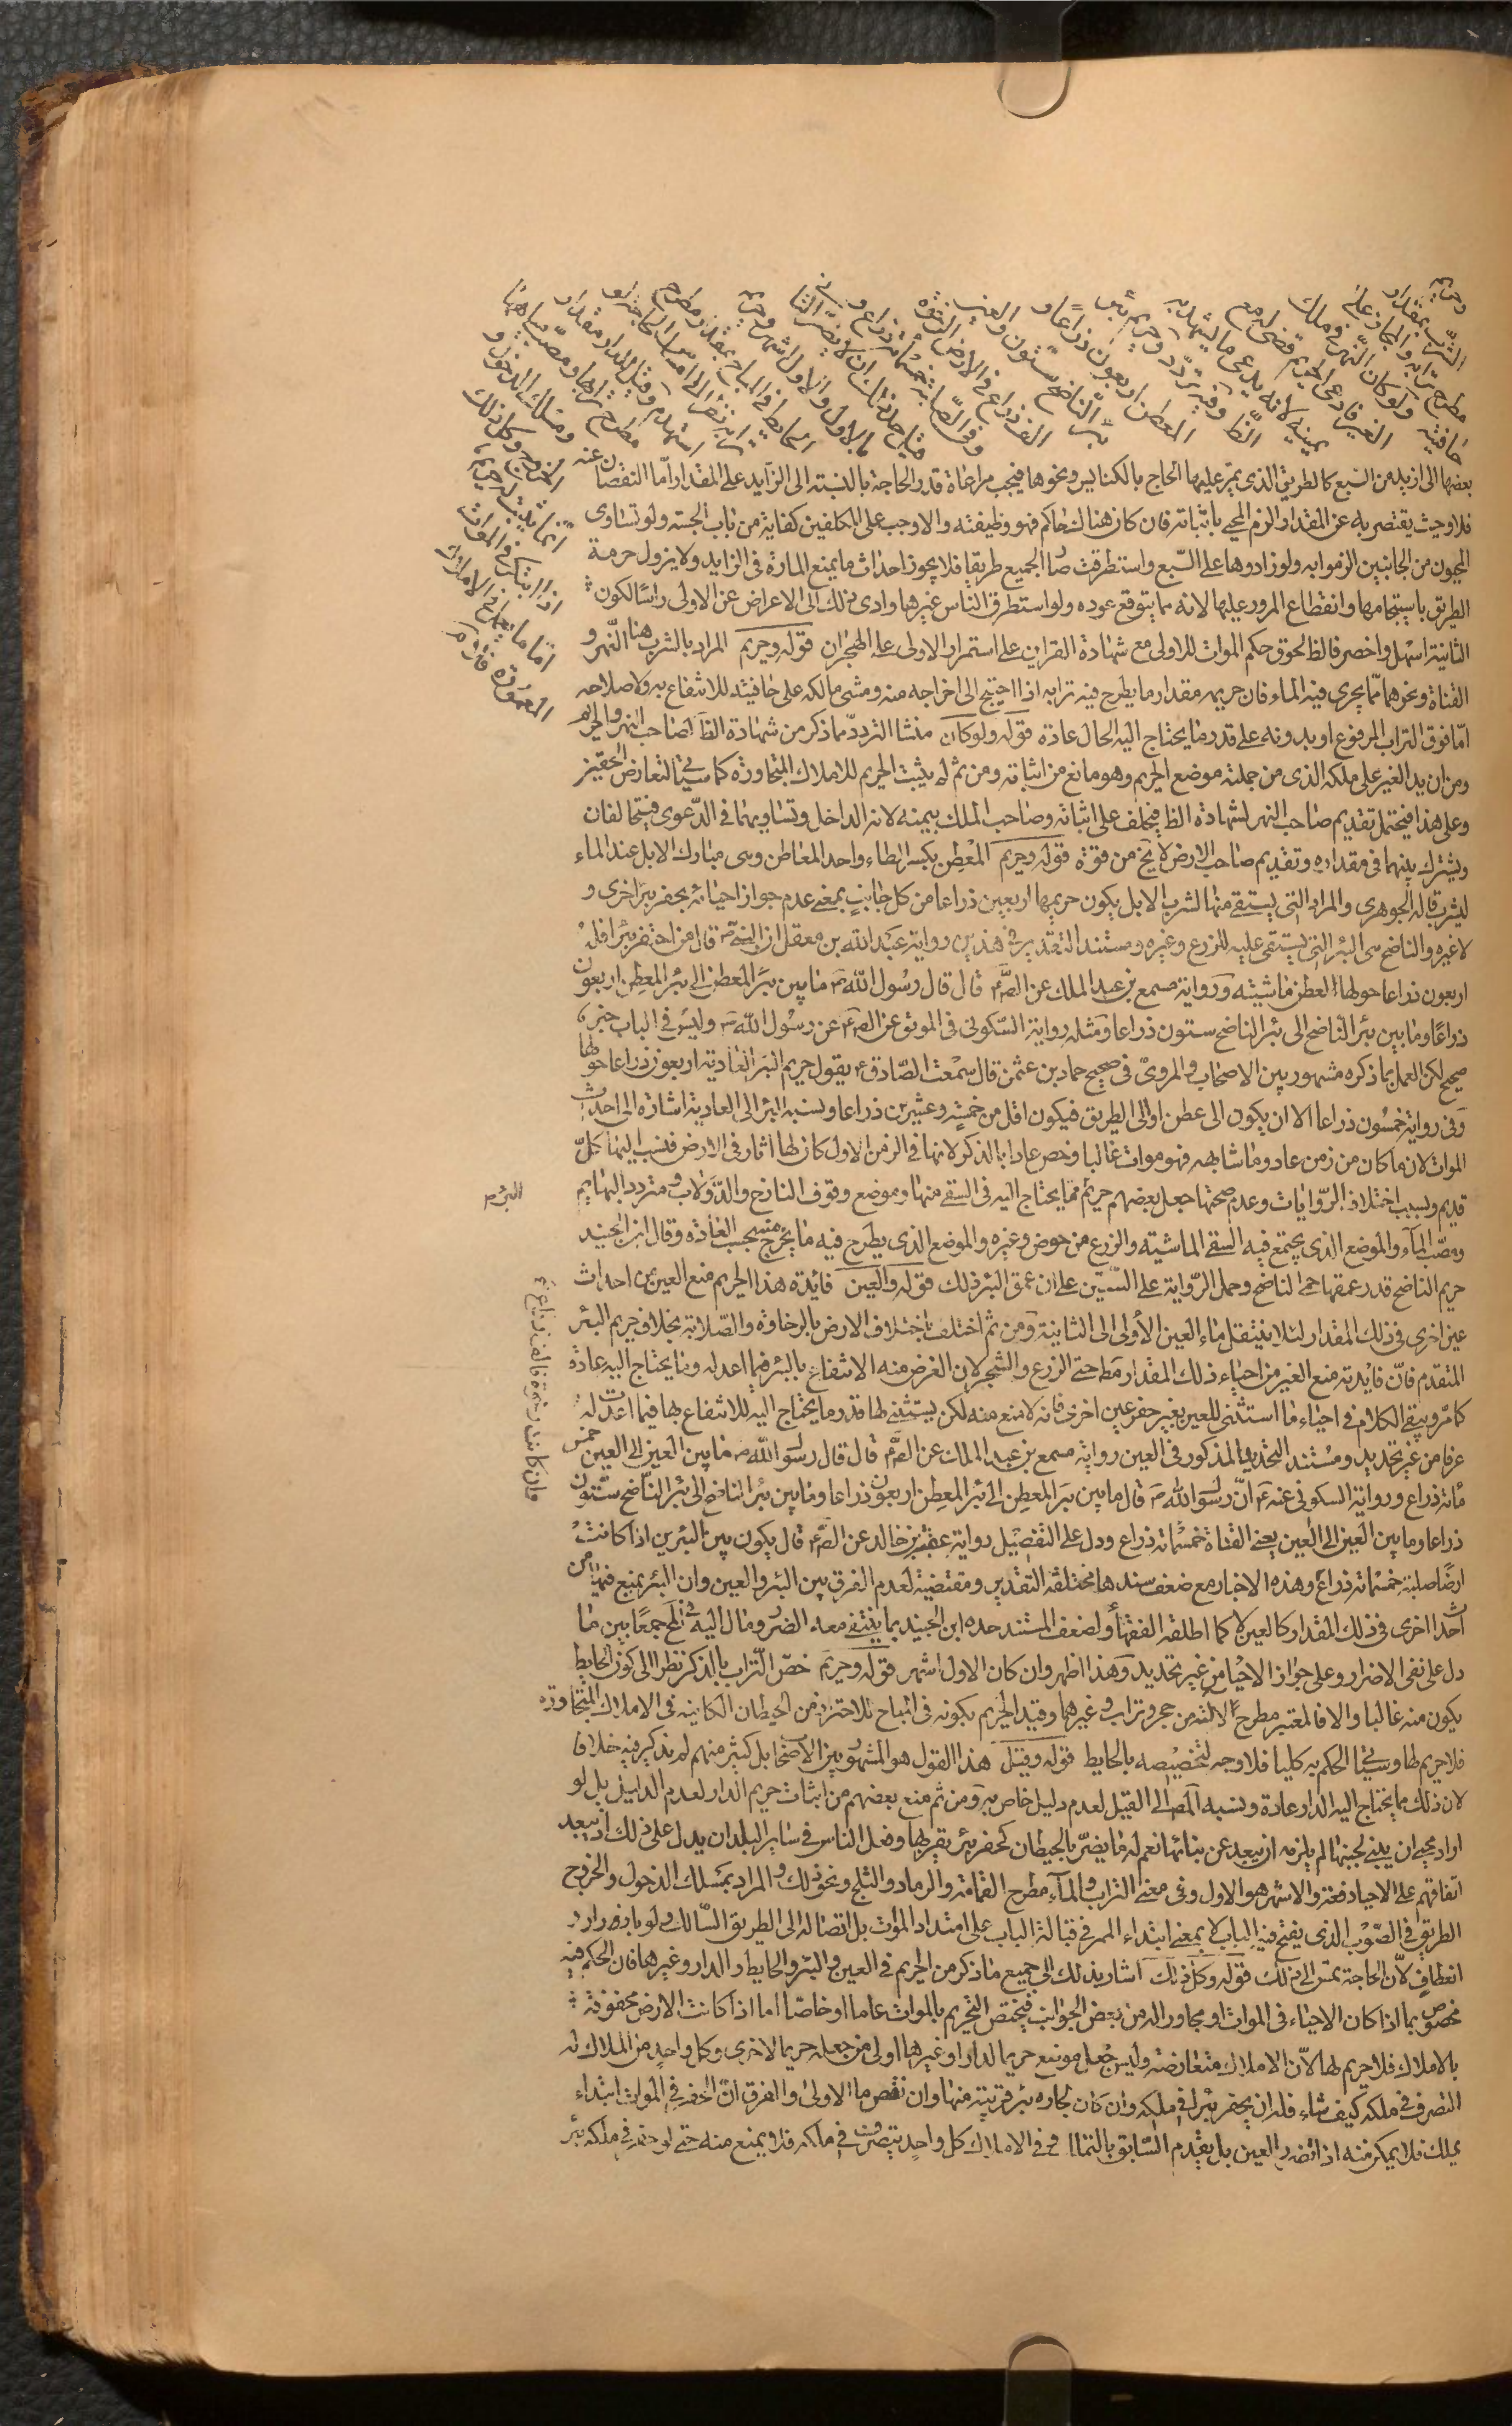 وحريم
الشرب بمقدار
مطرح ترابه والمجاز على
حافتيه ولو كان النهر في ملك
الغير فادعى الحريم قضى له مع
يمينه لانه يدعى ما يشهد به
الظ وفيه تردد وحريم بئر
المعطن اربعون ذراعا و
بئر الناضح ستون والعين
الف ذراع في الارض الرخوة
وفي الصلبة خمسمائة ذراع و
قيل حد ذلك ان لا يضر الثاني
بالاول والاول اشهر وحريم
الحايط في المباح بمقدار مطرح
ترابه نظرا الى امساس الحاجة اليه لو
استهدم وقيل للدار مقدار
مطرح ترابها ومصب مياهها
ومسلك الدخول و
الخروج وكل ذلك
انما يثبت له حريم
اذا ابتكر في الموات
اما ما يعمل في الاملاك
المعمورة فلا
بعضها الى ازيد من السبع كالطريق الذي يمر عليها الحاج بالكنايس ونحوها فيجب مراعاة قدر الحاجة بالنسبة الى الزايد على المقدار اما النقصان عنه
فلا وحيث يقتصر به عن المقدار الزم المحيى باثباته فان كان هناك حاكم فهو وظيفته والا وجب على المكلفين كفاية من باب الحسبة ولو تساوى
المحيون من الجانبين الزموا به ولو زادوها على السبع واستطرقت صار الجميع طريقا فلا يجوز احداث ما يمنع المارة في الزايد ولا يزول حرمة
الطريق باستيجامها وانقطاع المرور عليها لانه مما يتوقع عوده ولو استطرق الناس غيرها وادى ذلك الى الاعراض عن الاولى راسا لكون
الثانية اسهل واخصر فالظ لحوق حكم الموات للاولى مع شهادة القراين على استمرار الاولى على الهجران قوله وحريم المراد بالشرب هنا النهر و
القناة ونحوهما مما يجرى فيه الماء فان حريمه مقدار ما يطرح فيه ترابه اذا احتيج الى اخراجه منه ومشى مالكه على حافتيه للانتفاع به ولاصلاحه
اما فوق التراب المرفوع او بدونه على قدر ما يحتاج اليه الحال عادة قوله ولو كان منشا التردد مما ذكر من شهادة الظ لصاحب النهر والحريم
ومن ان يد الغير على ملكه الذي من جملته موضع الحريم وهو مانع من اثباته ومن ثم لم يثبت الحريم للاملاك المتجاورة كما سيجئ لتعارض الحقين
وعلى هذا فيحتمل تقديم صاحب النهر لشهادة الظ فيحلف على اثباته وصاحب الملك بيمينه لانه الداخل وتساويهما في الدعوى فيتحالفان
ويشترك بينهما في مقداره وتقديم صاحب الارض لا يخ من قوة قوله وحريم المعطن بكسر الطاء واحد المعاطن وهى مبارك الابل عند الماء
ليشرب قاله الجوهرى والمراد التى يستقى منها لشرب الابل يكون حريمها اربعين ذراعا من كل جانب بمعنى عدم جواز احيائه بحفر بئر اخرى و
لا غيره والناضح هى البئر التى يستقى عليه للزرع وغيره ومستند التقدير في هذين رواية عبد الله بن معقل ان النبى ص قال من احتفر بئرا فله
اربعون ذراعا حولها لعطن ماشيته ورواية مسمع بن عبد الملك عن الص ع قال قال رسول الله ص ما بين بئر المعطن الى بئر المعطن اربعون
ذراعا وما بين بئر الناضح الى بئر الناضح ستون ذراعا ومثله رواية السكونى في الموثق عن الص ع عن رسول الله ص وليس في الباب خبر
صحيح لكن العمل بما ذكره مشهور بين الاصحاب والمروى في صحيح حماد بن عثمن قال سمعت الصادق ع يقول حريم البئر العادية اربعون ذراعا حولها
وفى رواية خمسون ذراعا الا ان يكون الى عطن او الى الطريق فيكون اقل من خمسة وعشرين ذراعا ونسبة البئر الى العادية اشارة الى احداث
الموات لان ما كان من زمن عاد وما شابهه فهو موات غالبا وخص عادا بالذكر لانها في الزمن الاول كان لها اثار في الارض فنسب اليها كل
قديم وبسبب اختلاف الروايات وعدم صحتها جعل بعضهم حريم ما يحتاج اليه في السقى منها وموضع وقوف النازح والدولاب ومتردد البهايم
البئر ص
ومصب الماء والموضع الذى يجتمع فيه لسقى الماشية والزرع من حوض وغيره والموضع الذى يطرح فيه ما يخرج منه بحسب العادة وقال ابن الجنيد
حريم الناضح قدر عمقها حمى للناضح وحمل الرواية على الستين على ان عمق البئر ذلك قوله والعين فائدة هذا الحريم منع الغير من احداث
عين اخرى في ذلك المقدار لئلا ينتقل ماء العين الاولى الى الثانية ومن ثم اختلف باختلاف الارض بالرخاوة والصلابة بخلاف حريم البئر
المتقدم فان فايدته منع الغير من احياء ذلك المقدار مطلقا حتى الزرع والشجر لان الغرض منه الانتفاع بالبئر فيما اعد له وما يحتاج اليه عادة
كما مر ويبقى الكلام في احياء ما استثنى للعين بغير حفر عين اخرى فانه لا منع منه لكن يستثنى لها قدر ما يحتاج اليه للانتفاع بها فيما اعدت له
عرفا من غير تحديد ومستند التحديد المذكور في العين رواية مسمع بن عبد الملك عن الص ع قال قال رسول الله ص ما بين العين الى العين خمس
مائة ذراع ورواية السكونى عنه ع ان رسول الله ص قال ما بين بئر المعطن الى بئر المعطن اربعون ذراعا وما بين بئر الناضح الى بئر الناضح ستون
ذراعا وما بين العين الى العين يعنى القناة خمسمائة ذراع ودل على التفصيل رواية عقبة بن خالد عن الص ع قال يكون بين البئرين اذا كانت
فان كانت رخوة فالف ذراع
ارضا صلبة خمسمائة ذراع وهذه الاخبار مع ضعف سندها مختلفة التقدير ومقتضية لعدم الفرق بين البئر والعين وان البئر يمنع فيها من
احداث اخرى في ذلك المقدار كالعين لا كما اطلقه الفقهاء ولضعف المستند حده ابن الجنيد بما ينتفى معه الضرر ومال اليه في لف جمعا بين ما
دل على نفى الاضرار وعلى جواز الاحيا من غير تحديد وهذا اظهر وان كان الاول اشهر قوله وحريم خص التراب بالذكر نظرا الى كون الحايط
يكون منه غالبا والا فالمعتبر مطرح الاته من حجر وتراب وغيرهما وقيد الحريم بكونه في المباح للاحتراز من الحيطان الكاينة في الاملاك المتجاورة
فلا حريم لها وسيجئ الحكم به كليا فلا وجه لتخصيصه بالحايط قوله وقيل هذا القول هو المشهور بين الاصحاب بل كثير منهم لم يذكر فيه خلافا
لان ذلك مما يحتاج اليه الدار عادة ونسبه المص الى القيل لعدم دليل خاص به ومن ثم منع بعضهم من اثبات حريم الدار لعدم الدليل بل لو
اراد محيى ان يبنى بجنبها لم يلزمه ان يبعد عن بنائها نعم له منع ما يضر بالحيطان كحفر بئر بقربها وفعل الناس في ساير البلدان يدل على ذلك اذ يبعد
اتفاقهم على الاحياء دفعة والاشهر هو الاول وفى معنى التراب والماء مطرح القمامة والرماد والثلج ونحو ذلك والمراد بمسلك الدخول والخروج
الطريق في الصوب الذى يفتح فيه الباب لا بمعنى ابتداء الممر في قبالة الباب على امتداد الموات بل اتصاله الى الطريق السالك ولو بازورار و
انعطاف لان الحاجة تمس الى ذلك قوله وكل ذلك اشار بذلك الى جميع ما ذكر من الحريم في العين والبئر والحايط والدار وغيرها فان الحكم فيه
مخصوص بما اذا كان الاحياء في الموات او مجاور اله من بعض الجوانب فيختص التحريم بالموات عاما او خاصا اما اذا كانت الارض محفوفة
بالاملاك فلا حريم لها لان الاملاك متعارضة وليس جعل موضع حريما لدار او غيرها اولى من جعله حريما لاخرى وكل واحد من الملاك له
التصرف في ملكه كيف شاء فله ان يحفر بئرا في ملكه وان كان لجاره بئر قريبة منها وان نقص ما الاولى والفرق ان الحفر في الموات ابتداء
يملك فلا يمكن منه اذا تضرر العين بل يقدم السابق بالتملك وفي الاملاك كل واحد يتصرف في ملكه فلا يمنع منه حتى لو حفر في ملكه بئر